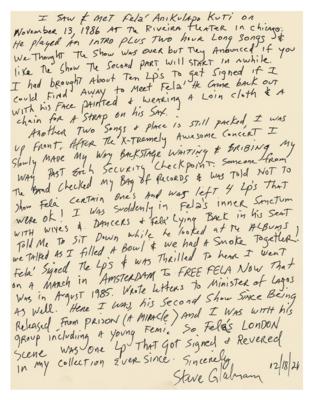 I Saw & Met Fela' Anikulapo Kuti on
November 13, 1986 At The Riviera Theater in Chicago.
He played An Intro plus Two hour Long songs &
We Thought The Show was over but They Anounced if you
like The Show The Second part will start in awhile.
I had brought About Ten Lps to get Signed if I
could Find Away to Meet Fela' He Came back out
with his Face painted & wearing a Loin cloth & a
chain for A Strap on his Sax.
Another Two Songs & place is still packed, I was
up Front. After the X-Tremely Awesome Concert I
Slowly Made My Way Backstage Waiting & Bribing My
Way Past Both Security Checkpoint. Someone from
The Band Checked My Bag of Records & was Told NOT to
Show Fela' certain ones and was left 4 Lps That
were ok! I was Suddenly in Fela's inner Sanctum
with wives & Dancers & Fela' Lying Back in his Seat
Told Me to Sit Down while he looked at the Albums &
we talked As I filled A Bowl & we had a Smoke Together.
Fela' Signed The Lps & was Thrilled to hear I went
on a March in Amsterdam To FREE FELA Now That
was in August 1985. Wrote letters to Minister of Lagos
As Well. Here I was, his Second Show Since Being
Released From Prison (A Miracle) And I was with his
group including a Young Femi. So Fela's LONDON
Scene was one Lp That Got Signed & Revered
in my collection Ever Since. Sincerely,
Steve 12/18/24